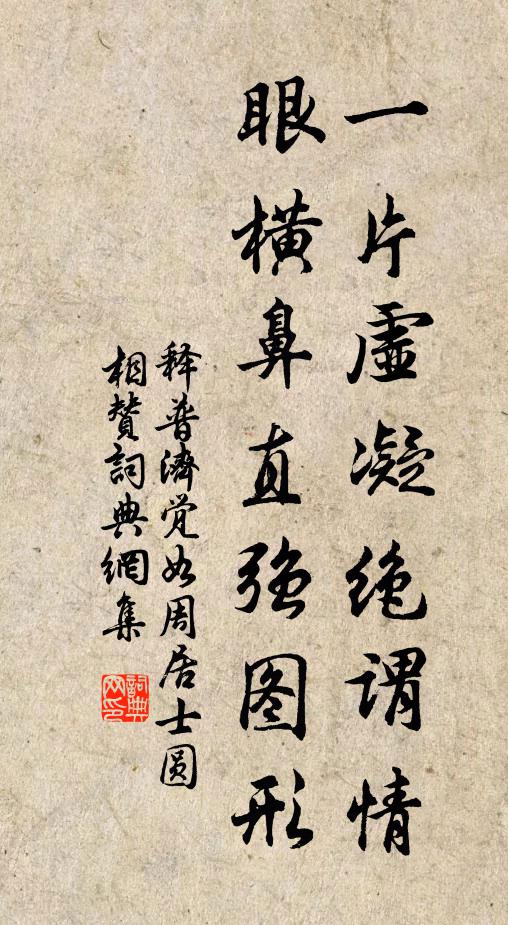 一片虛凝绝謂情
眼横鼻直强图形
释普濟觉如周居士圆
相赞詞典網集
詞典
网印